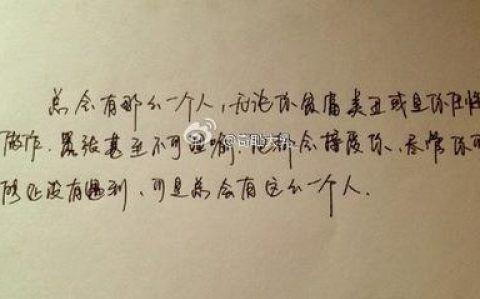 总会有那么一个人,无论你贫富美丑或是你任性
做作.嚣张甚至不可理喻.他都会接受你、尽管你可
能还没有遇到、可是总会有这么一个人.